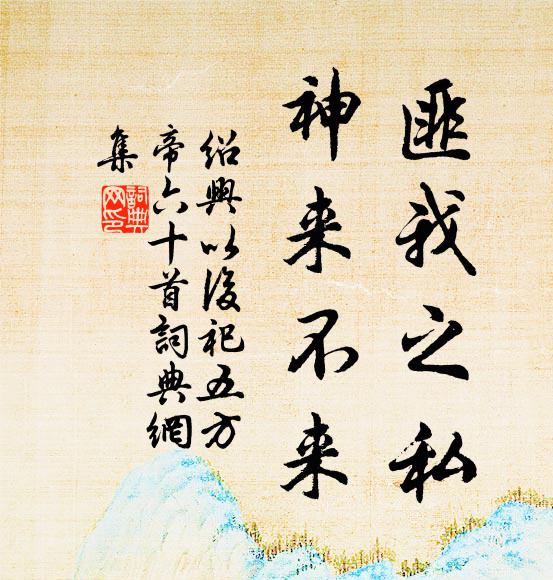 匪我之私
神来不来
绍興以後祀五方
帝六十首詞典網
集
詞典網印